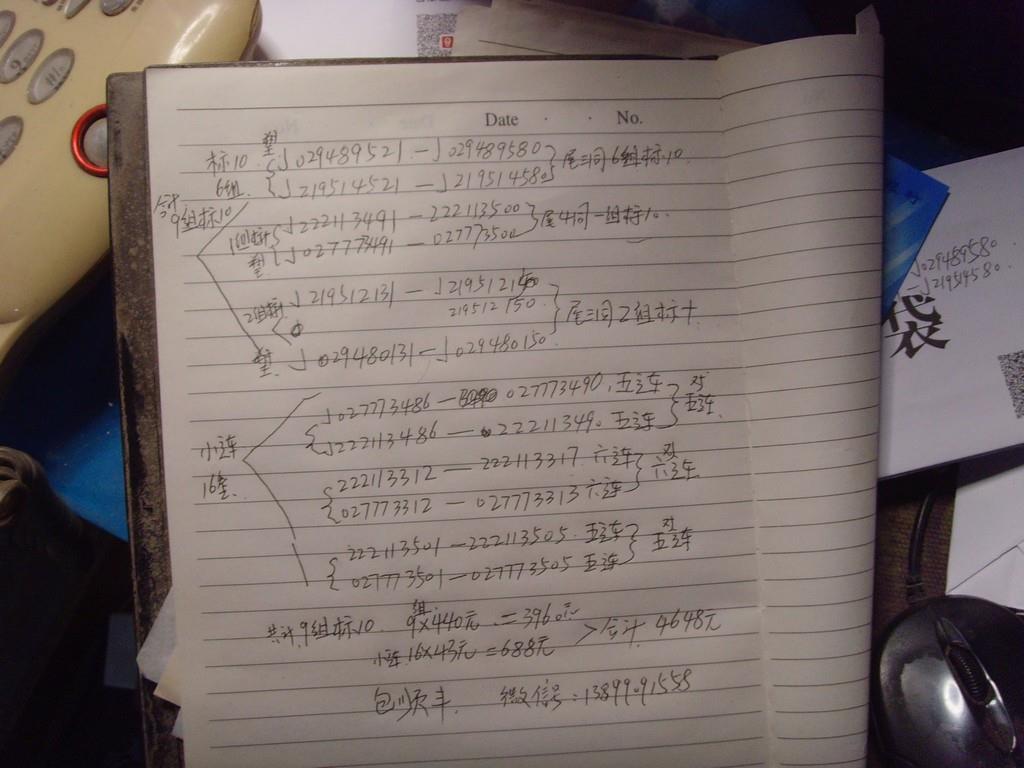 Date · · No.
标10 J029489521-J029489580
6组 J219514521-J219514580 尾三同6组标10
合计9组标10
J222113491-222113500
J027773491-027773500 尾4同一组标10
2组标 J219512131-J219512150
219512150
尾三同2组标十
J029480131-J029480150
小连
16套
J027773486-027773490.五连
J222113486-222113490 五连 对五连
222113312-222113317 六连
027773312-027773313 六连 对六连
222113501-222113505 五连
027773501-027773505 五连 对五连
共计9组标10 9×440元=3960元
小连16×43元=688元 >合计 4648元
包顺丰 微信号:13899091558
J029489580
J219514580
袋